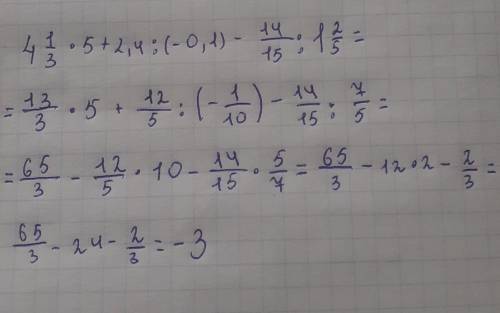 4 1/3 · 5 + 2,4 : (-0,1) - 14/15 : 1 2/5 =
= 13/3 · 5 + 12/5 : (- 1/10) - 14/15 : 7/5 =
= 65/3 - 12/5 · 10 - 14/15 · 5/7 = 65/3 - 12 · 2 - 2/3 =
65/3 - 24 - 2/3 = - 3